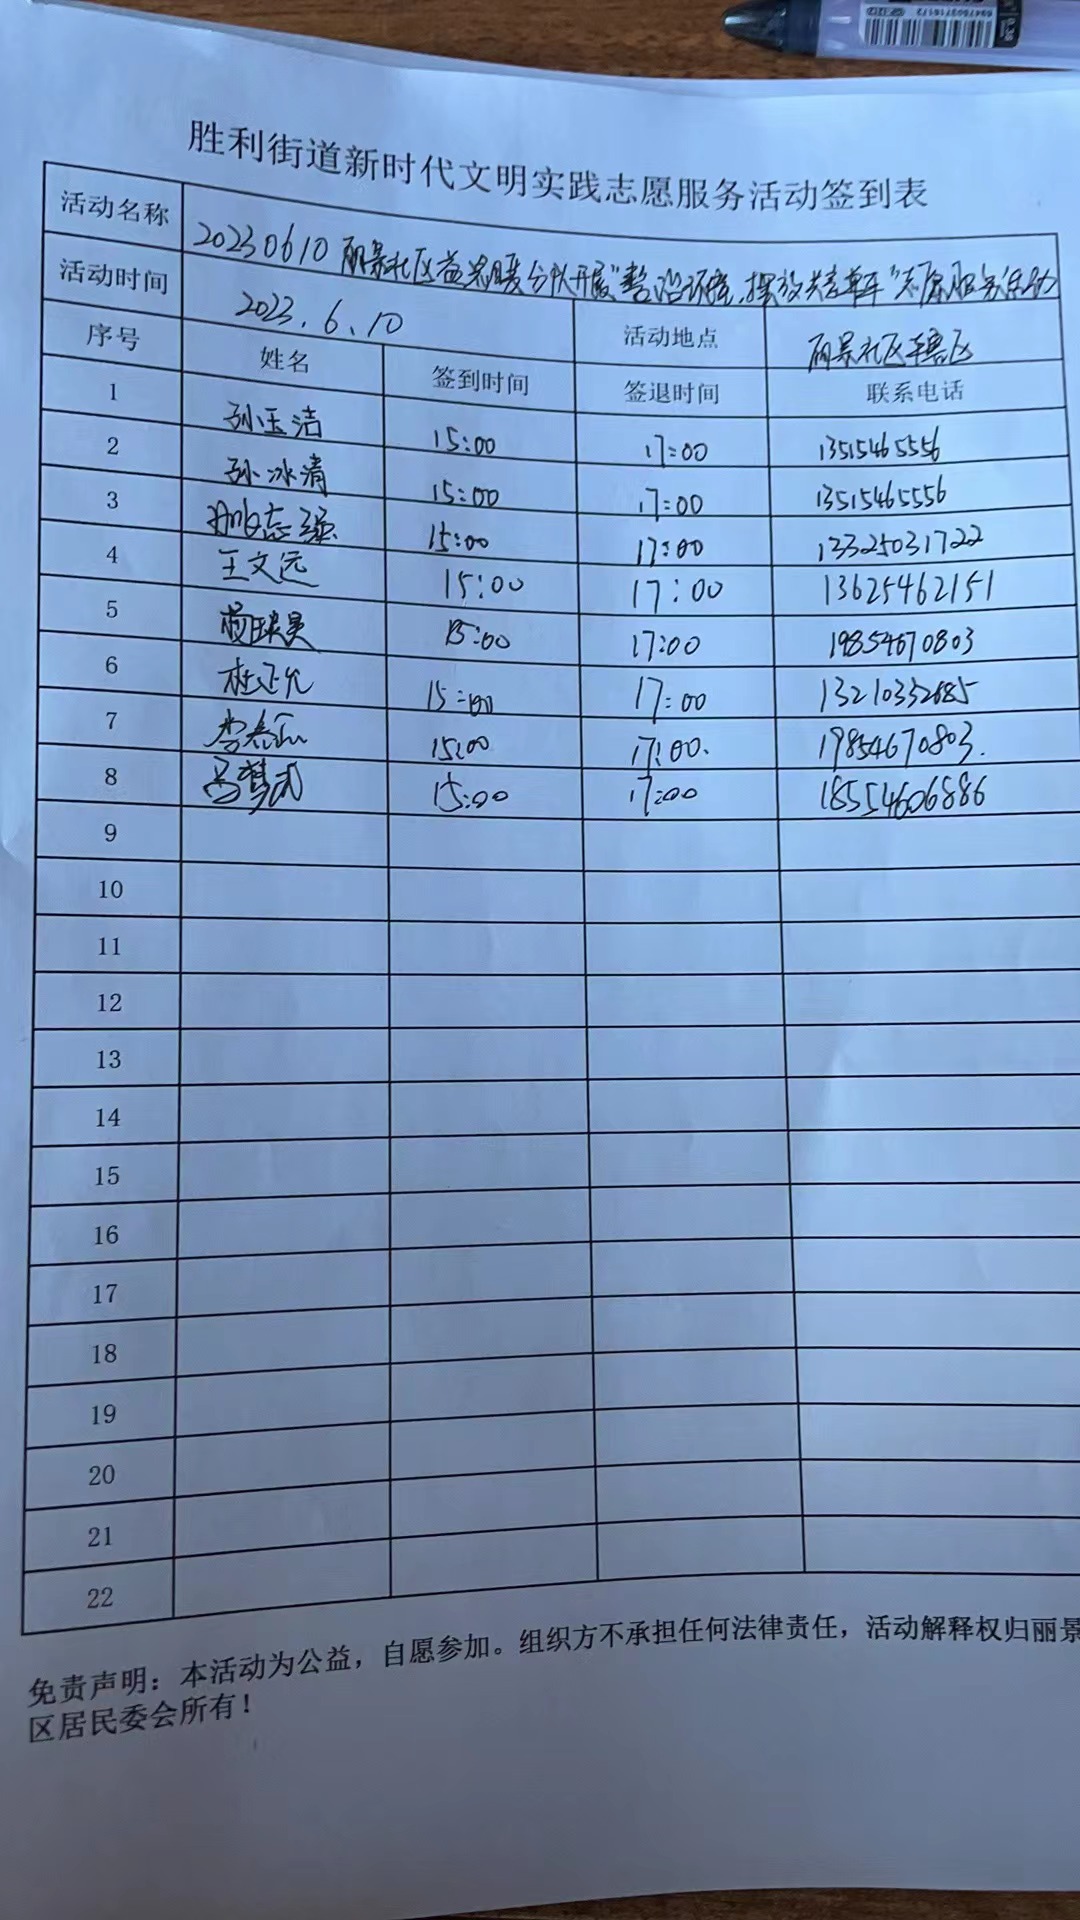 胜利街道新时代文明实践志愿服务活动签到表
活动名称 20230610丽景社区益老暖分队开展“整治环境,摆放共享单车”志愿服务活动
活动时间 2023.6.10 活动地点 丽景社区辖区
序号 姓名 签到时间 签退时间 联系电话
1 孙玉洁 15:00 17:00 13515465556
2 孙冰清 15:00 17:00 13515465556
3 志强 15:00 17:00 13325031722
4 王文远 15:00 17:00 13625462151
5 15:00 17:00 19854670803
6 杜正允 15:00 17:00 13210332685
7 15:00 17:00. 19854670803.
8 15:00 17:00 18554606886
9
10
11
12
13
14
15
16
17
18
19
20
21
22
免责声明：本活动为公益，自愿参加。组织方不承担任何法律责任，活动解释权归丽景
区居民委会所有！